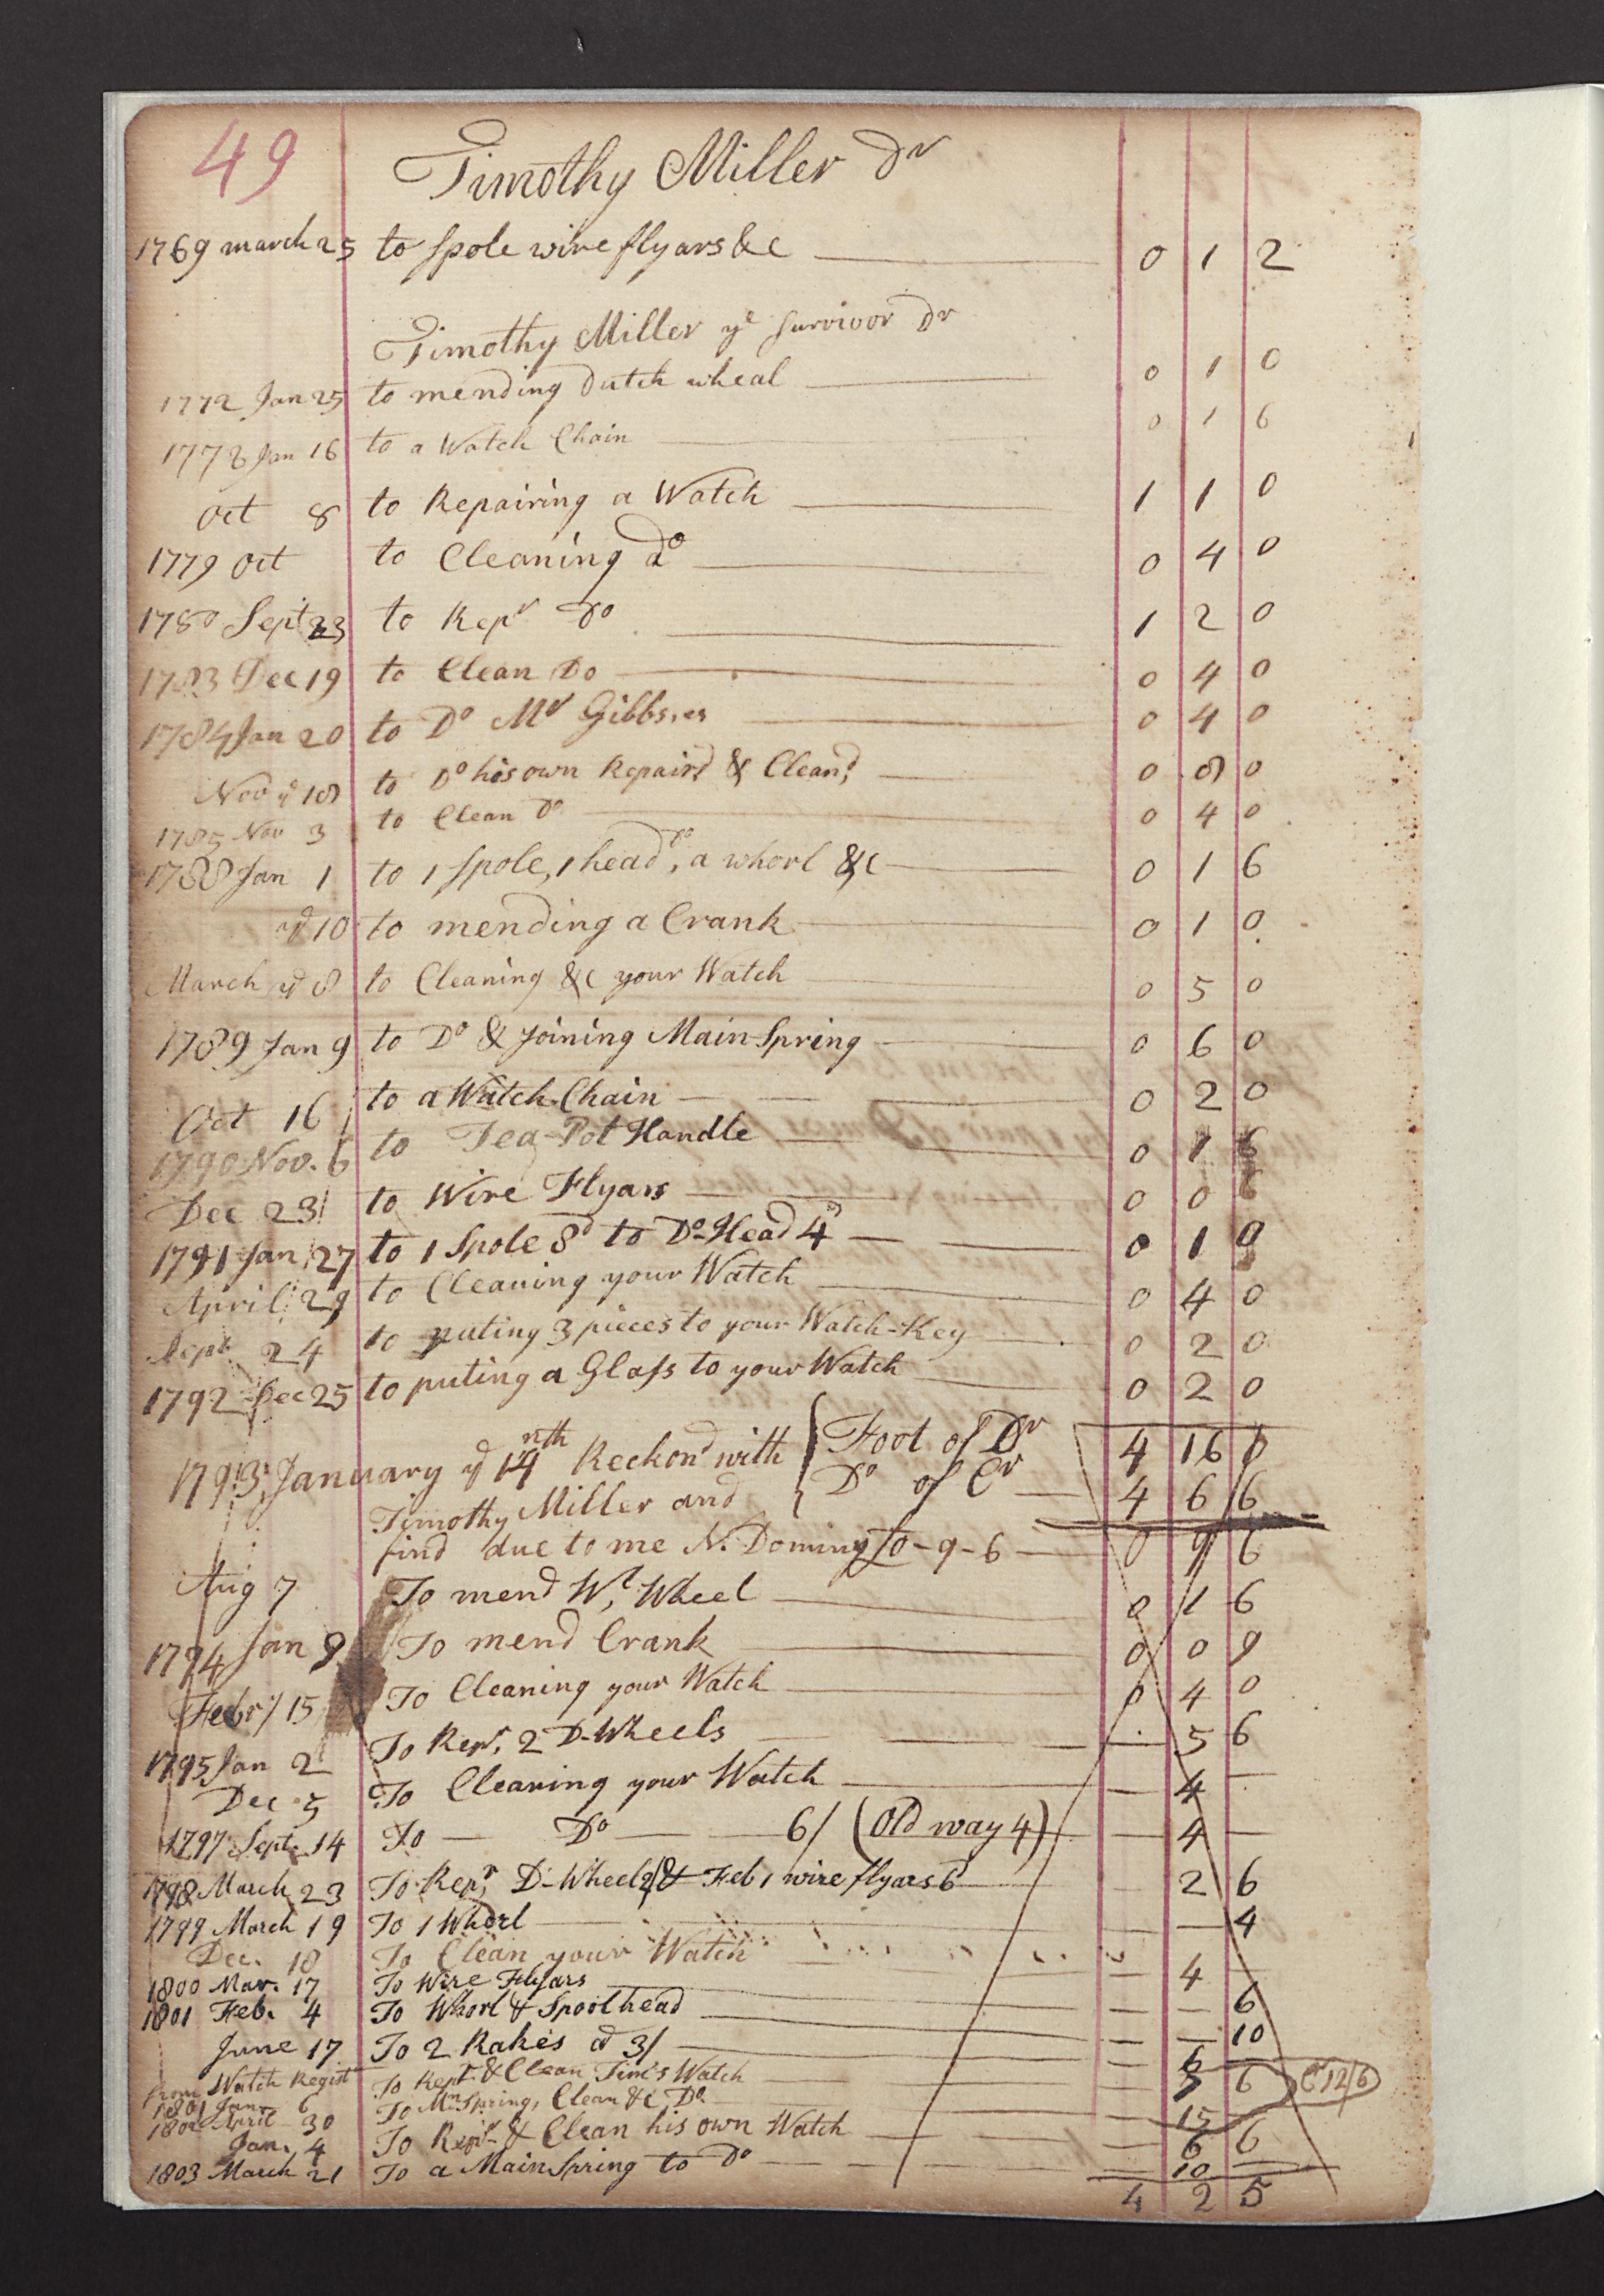 49 Timothy Miller Dr
1769 march 25 to spole wire flyars &c 0 1 2
Timothy Miller ye survivor Dr
1772 Jan 25 to mending dutch wheal 0 1 0
1778 Jan 16 to a Watch Chain 0 1 6
Oct 8 to Repairing a Watch 1 1 0
1779 Oct to Cleaning do 0 4 0
1780 Sept 23 to Repr Do 1 2 0
1783 Dec 19 to Clean Do 0 4 0
1784 Jan 20 to Do Mr Gibbs,es 0 4 0
Nov ye 18 to Do his own Repaird & Cleand 0 8 0
1785 Nov 3 to Clean Do 0 4 0
1788 Jan 1 to 1 spole, 1 head do, a whorl &c 0 1 6
ye 10 to mending a Crank 0 1 0
March ye 8 to Cleaning &c your Watch 0 5 0
1789 Jan 9 to Do & Joining Main-Spring 0 6 0
Oct 16 to a Watch-Chain 0 2 0
1790 Nov. 6 to Tea-Pot Handle 0 1 6
Dec 23 to Wire Flyars 0 0 6
1791 Jan 27 to 1 Spole 8d to Do-Head 4d 0 1 0
April 29 to Cleaning your Watch 0 4 0
Sept 24 to puting 3 pieces to your Watch-Key 0 2 0
1792 Dec 25 to puting a Glass to your Watch 0 2 0
1793 January ye 14th Reckond with { Foot of Dr 4 16 0
Timothy Miller and { Do of Cr 4 6 6
find due to me N. Dominy £0-9-6 0 9 6
Aug 7 To mend Wl, Wheel 0 1 6
1794 Jan 9 To mend Crank 0 0 9
Febry 15 To Cleaning your Watch 0 4 0
1795 Jan 2 To Repr, 2 D-Wheels 5 6
Dec 5 To Cleaning your Watch 4
1797 Sept. 14 To Do 6/ (Old way 4) 4
1798 March 23 To Repr, D-Wheel 2/ & Feb 1 wire flyars 6d 2 6
1799 March 19 To 1 Whorl 4
Dec. 18 To Clean your Watch 4
1800 Mar. 17 To Wire Flyars 6
1801 Feb. 4 To Whorl & Spool head 10
June 17 To 2 Rakes @ 3/ 6
from Watch Regist To Repr & Clean Tim's Watch 5 6 Cr 12/6
1801 Jan. 6 To Mn Spring, Clean &c Do 15
1802 April 30
Jan. 4 To Repr & Clean his own Watch 6 6
1803 March 21 To a Main Spring to Do 10
4 2 5